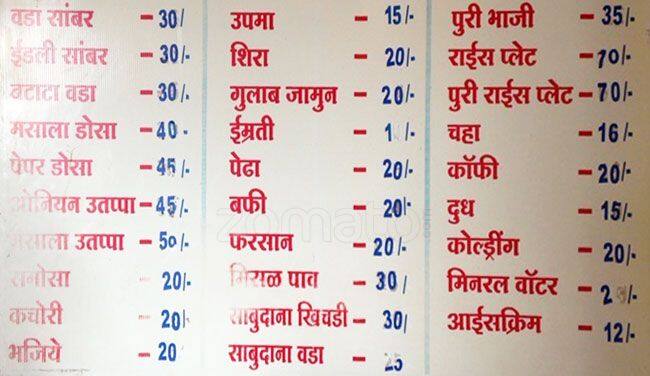 वडा सांबर - 30/
ईडली सांबर - 30/-
बटाटा वडा - 30/-
मसाला डोसा - 40 -
पेपर डोसा - 45/-
ओनियन उतप्पा - 45/-
मसाला उतप्पा - 50/-
समोसा - 20/-
कचोरी - 20/-
भजिये - 20
उपमा - 15/-
शिरा - 20/-
गुलाब जामुन - 20/-
ईम्रती -
पेढा - 20/-
बर्फी - 20/-
फरसान - 20/-
मिसळ पाव - 30/
साबुदाना खिचडी - 30/
साबुदाना वडा - 25
पुरी भाजी - 35/-
राईस प्लेट - 70/-
पुरी राईस प्लेट - 70/-
चहा - 16/-
कॉफी - 20/-
दुध - 15/-
कोल्ड्रींग - 20/-
मिनरल वॉटर -
आईसक्रिम - 12/-
zomato